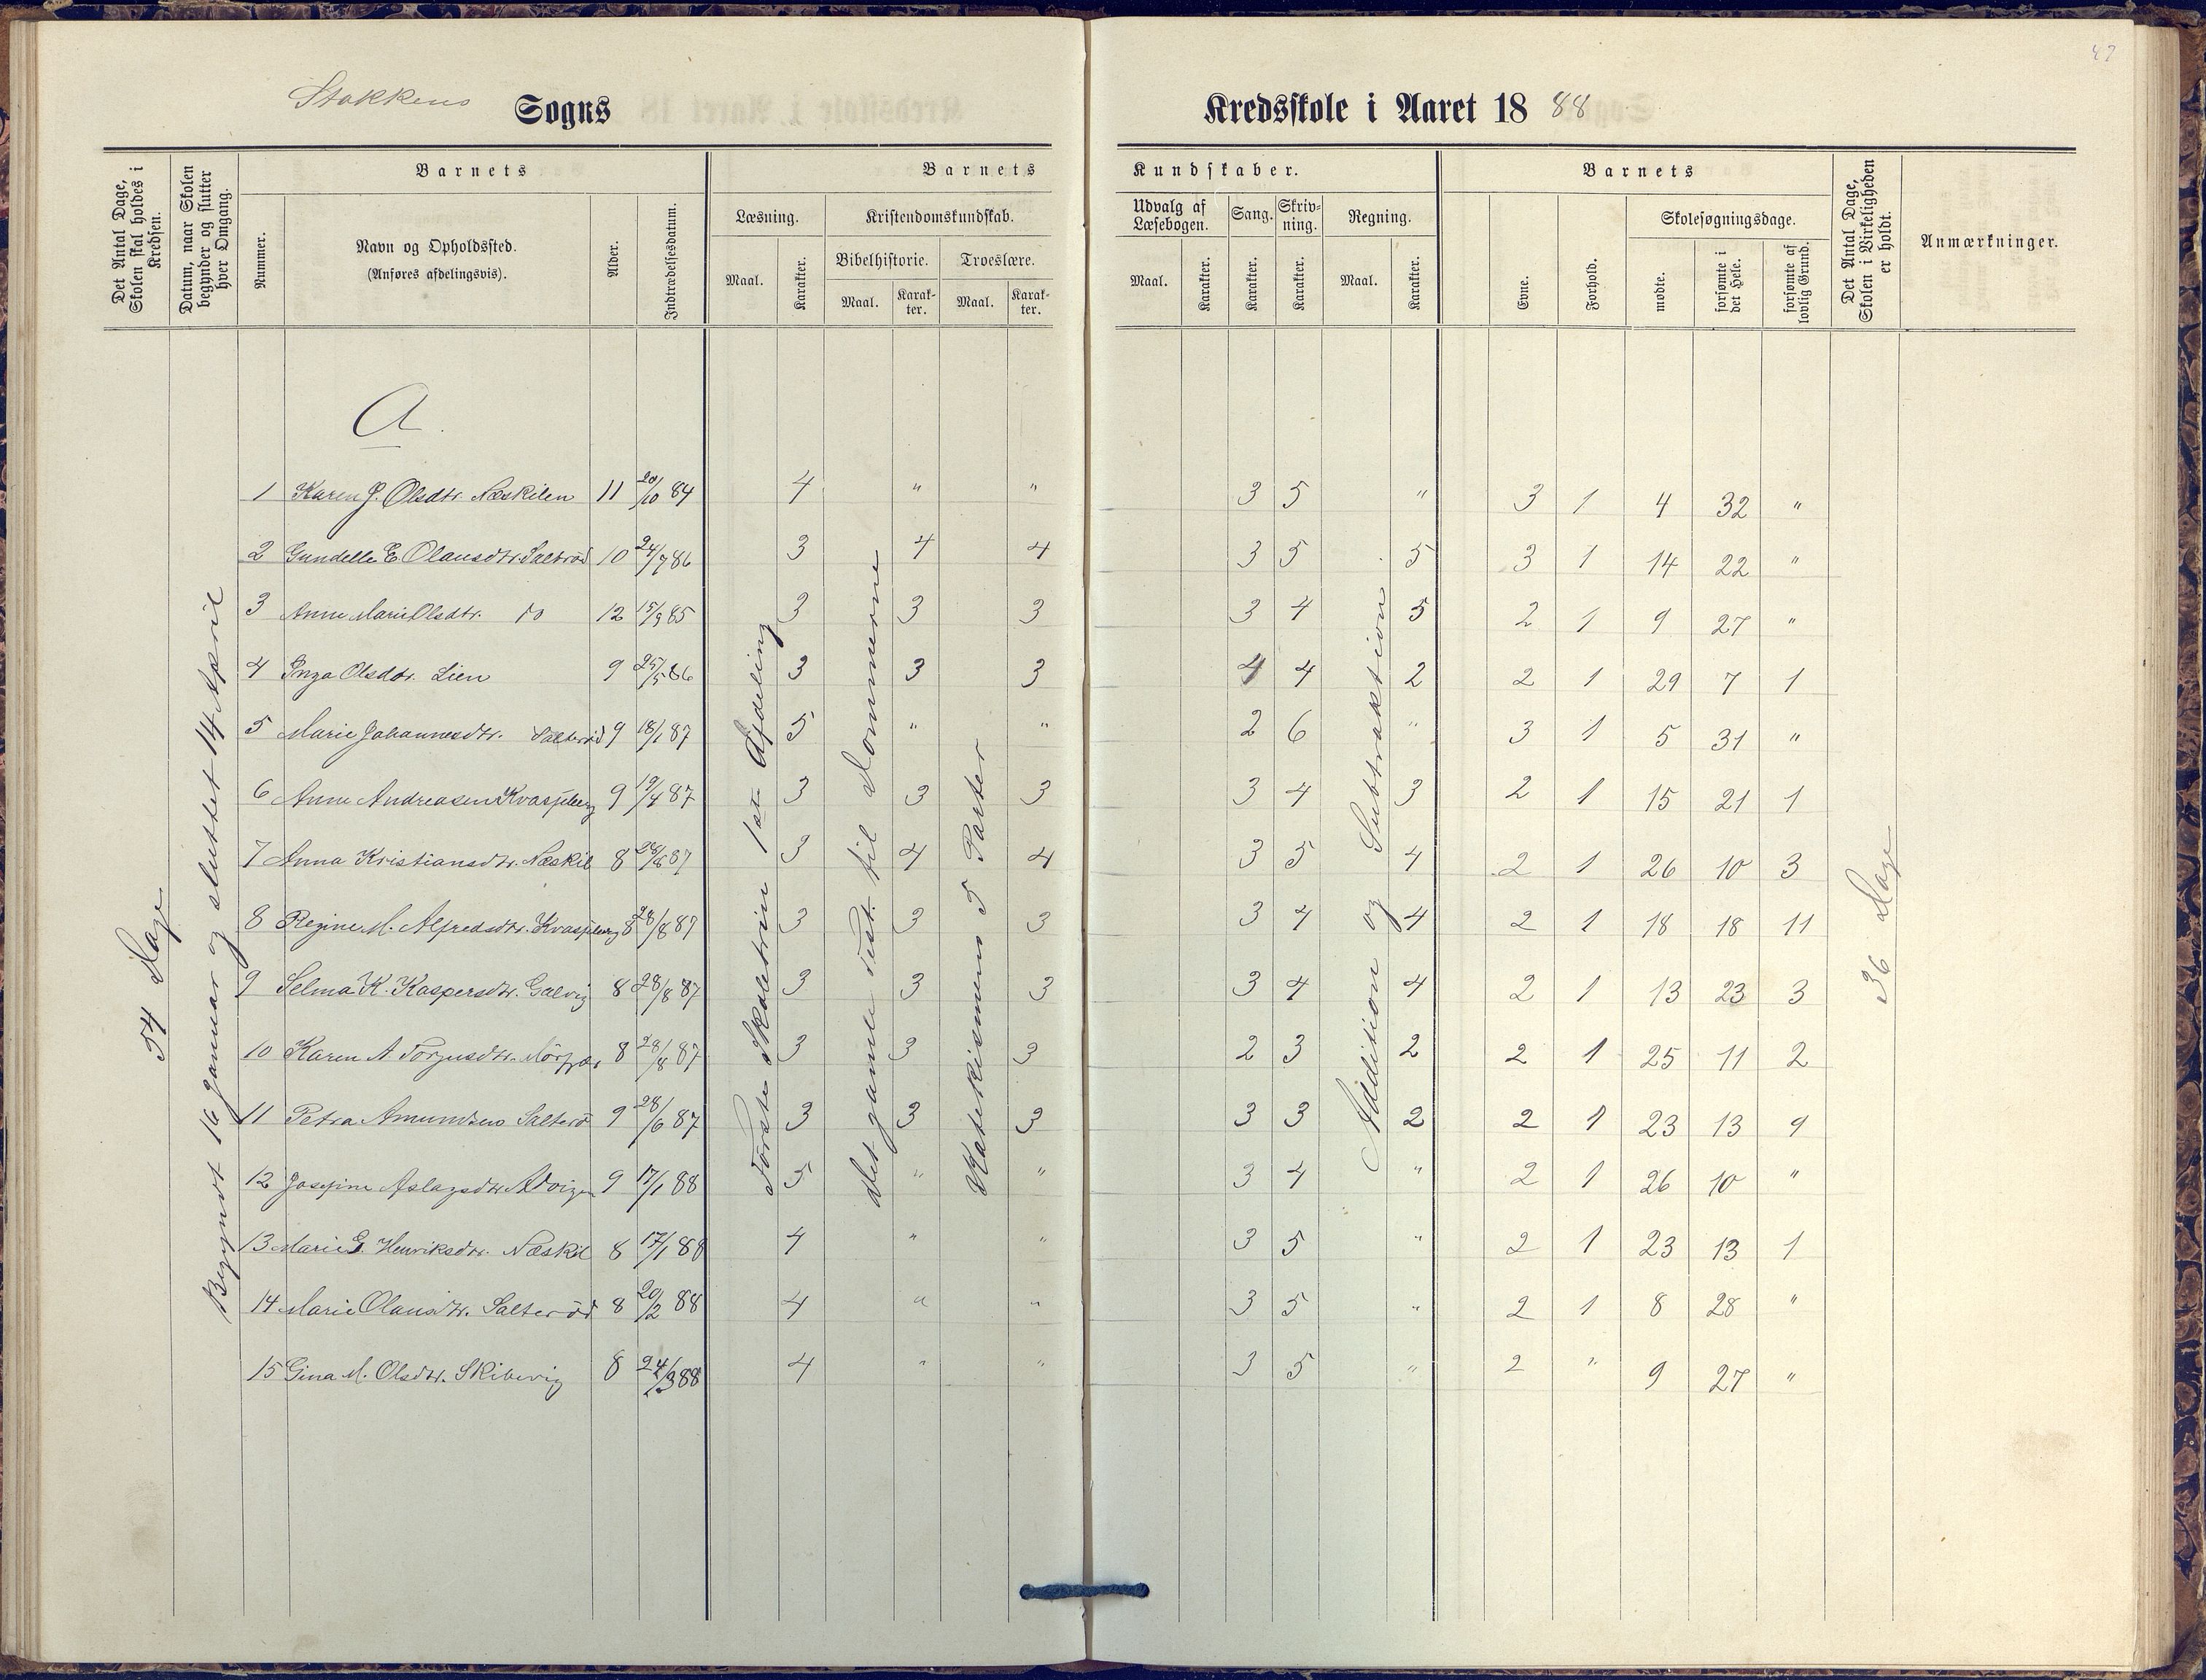 47
Stokkens Sogns Kredsskole i Aaret 1888
Det Antal Dage, Skolen skal holdes i Kredsen.
Datum, naar Skolen begynder og slutter hver Omgang.
Barnets
Nummer.
Navn og Opholdssted.
(Anføres afdelingsvis).
Alder.
Indtrædelsesdatum.
Barnets Kundskaber.
Læsning.
Maal.
Karakter.
Kristendomskundskab.
Bibelhistorie.
Maal.
Karakter.
Troeslære.
Maal.
Karakter.
Udvalg af Læsebogen.
Maal.
Karakter.
Sang.
Karakter.
Skrivning.
Karakter.
Regning.
Maal.
Karakter.
Barnets
Evne.
Forhold.
Skolesøgningsdage.
mødte.
forsømte i det Hele.
forsømte af lovlig Grund.
Det Antal Dage, Skolen i Virkeligheden er holdt.
Anmærkninger.
54 Dage
Begyndt 16 Januar og sluttet 14 April
Første Skoletrin 1ste Afdeling
Det gamle Test. til Dommerne
Katekismens 5 Parter
Addition og Subtraktion
36 Dage
A
1 Karen J. Olsdtr. Neskilen 11 20/10 84 4 " " 3 5 " 3 1 4 32 "
2 Gundelle E Olausdtr. Salterød 10 24/7 86 3 4 4 3 5 5 3 1 14 22 "
3 Anne Marie Olsdtr. do 12 15/9 85 3 3 3 3 4 5 2 1 9 27 "
4 Inga Olsdtr. Lien 9 25/5 86 3 3 3 4 4 2 2 1 29 7 1
5 Marie Johannesdtr. Salterød 9 18/1 87 5 " " 2 6 " 3 1 5 31 "
6 Anne Andreasen Kvasjeberg 9 19/4 87 3 3 3 3 4 3 2 1 15 21 1
7 Anna Kristiansdtr. Næskil 8 87 3 4 4 3 5 4 2 1 26 10 3
8 Regine M. Alfredsdtr. Kvasjeberg 8 28/8 87 3 3 3 3 4 4 2 1 18 18 11
9 Selma K. Kaspersdtr. Galvig 8 28/8 87 3 3 3 3 4 4 2 1 13 23 3
10 Karen A Torjusdtr. 8 28/8 87 3 3 3 2 3 2 2 1 25 11 2
11 Petra Amundsen Salterø 9 28/6 87 3 3 3 3 3 2 2 1 23 13 9
12 Josefine Aslagsdtr 9 17/1 88 5 " " 3 4 " 2 1 26 10 "
13 Marie G. Henriksdtr. Næskil 8 17/1 88 4 " " 3 5 " 2 1 23 13 1
14 Marie Olausdtr. Salterød 8 20/2 88 4 " " 3 5 " 2 1 8 28 "
15 Gina M. Olsdtr. Skibvig 8 24/3 88 4 " " 3 5 " 2 " 9 27 "